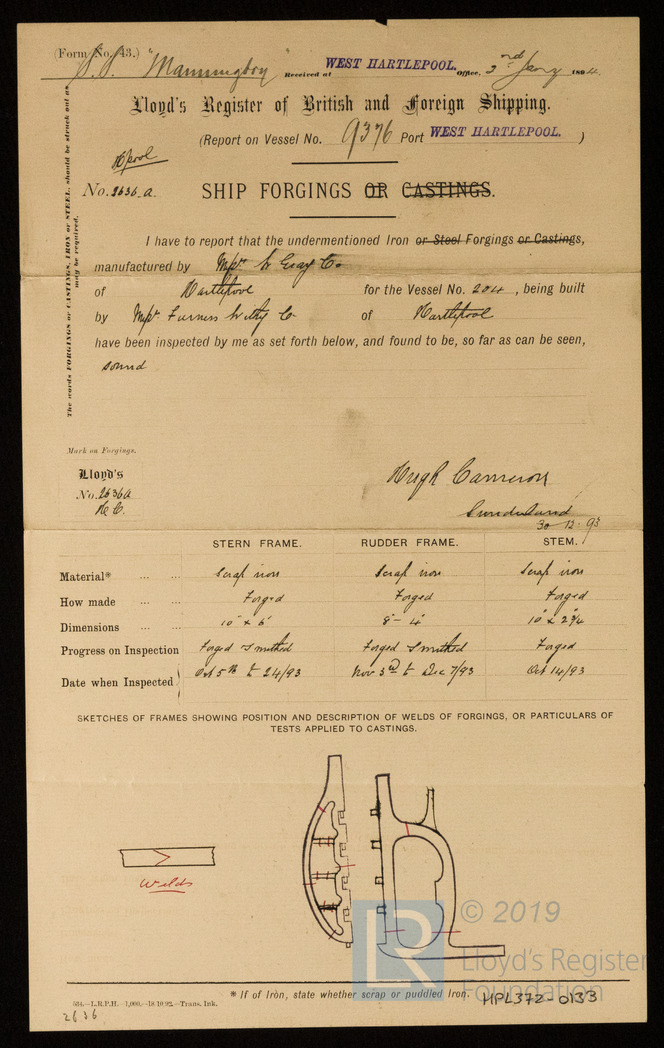 (Form No. 43.)
S.S. "Manningtry" Received at WEST HARTLEPOOL. Office, 2nd Jany 1894.
Lloyd's Register of British and Foreign Shipping.
(Report on Vessel No. 9376 Port WEST HARTLEPOOL. )
Hpool
No. 2636 a. SHIP FORGINGS OR CASTINGS.
The words FORGINGS or CASTINGS, IRON or STEEL, should be struck out as
may be required.
I have to report that the undermentioned Iron or Steel Forgings or Castings,
manufactured by Messrs W Gray & Co
of Hartlepool for the Vessel No. 204, being built
by Messrs Furness Withy & Co of Hartlepool
have been inspected by me as set forth below, and found to be, so far as can be seen,
sound
Mark on Forgings.
Lloyd's
No. 2636a
H.C.
Hugh Cameron
Sunderland
30-12-93
STERN FRAME. RUDDER FRAME. STEM.
Material* ... ... Scrap iron Scrap iron Scrap iron
How made ... ... Forged Forged Forged
Dimensions ... ... 10" x 6" 8" - 4" 10" x 2 3/4
Progress on Inspection Forged & Smithed Forged & Smithed Forged
Date when Inspected Oct 5th to 24/93 Nov 3rd to Dec 7/93 Oct 14/93
SKETCHES OF FRAMES SHOWING POSITION AND DESCRIPTION OF WELDS OF FORGINGS, OR PARTICULARS OF
TESTS APPLIED TO CASTINGS.
Welds
© 2019
LR Lloyd's Register
Foundation
* If of Iron, state whether scrap or puddled Iron.
HPL372-0133
584.—L.R.P.H.—1,000.—18.10.92.—Trans. Ink.
2636